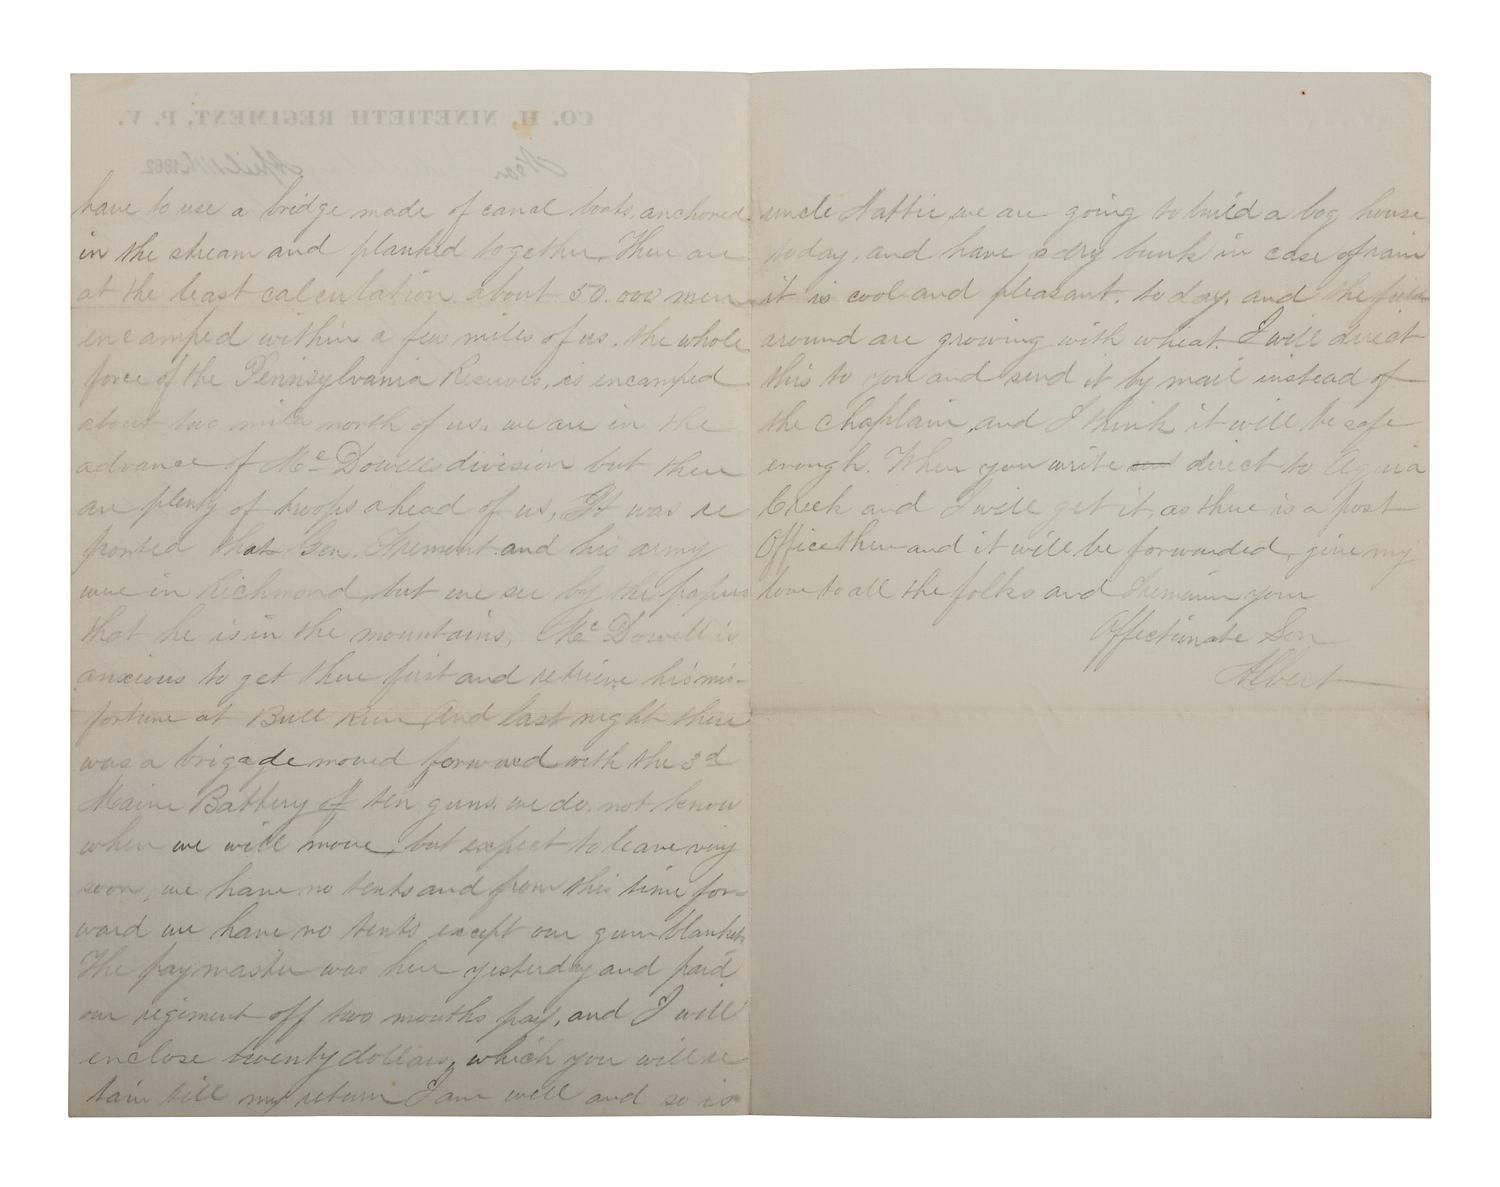 CO. H, NINETIETH REGIMENT, P. V.
Near April 1862
have to use a bridge made of canal boats, anchored
in the stream and planked together. There are
at the least calculation about 50.000 men
encamped within a few miles of us. the whole
force of the Pennsylvania Reserves, is encamped
about two miles north of us. we are in the
advance of McDowells division but there
are plenty of troops ahead of us, It was re
ported that Gen. Fremont and his army
were in Richmond, but we see by the papers
that he is in the mountains, McDowell is
anxious to get there first and retrieve his mis-
fortune at Bull Run And last night there
was a brigade moved forward with the 3d
Maine Battery of ten guns. we do not know
when we will move, but expect to leave very
soon, we have no tents and from this time for-
ward we have no tents except our gum blankets
The paymaster was here yesterday and paid
our regiment off two months pay, and I will
enclose twenty dollars, which you will re
tain till my return I am well and so is
uncle Hattie, we are going to build a log house
today, and have a dry bunk in case of rain
it is cool and pleasant. to day, and the fields
around are growing with wheat. I will direct
this to you and send it by mail instead of
the chaplain, and I think it will be safe
enough. When you write direct to Aquia
Creek and I will get it, as there is a post
Office there and it will be forwarded, give my
love to all the folks and I remain your
Affectionate Son
Albert